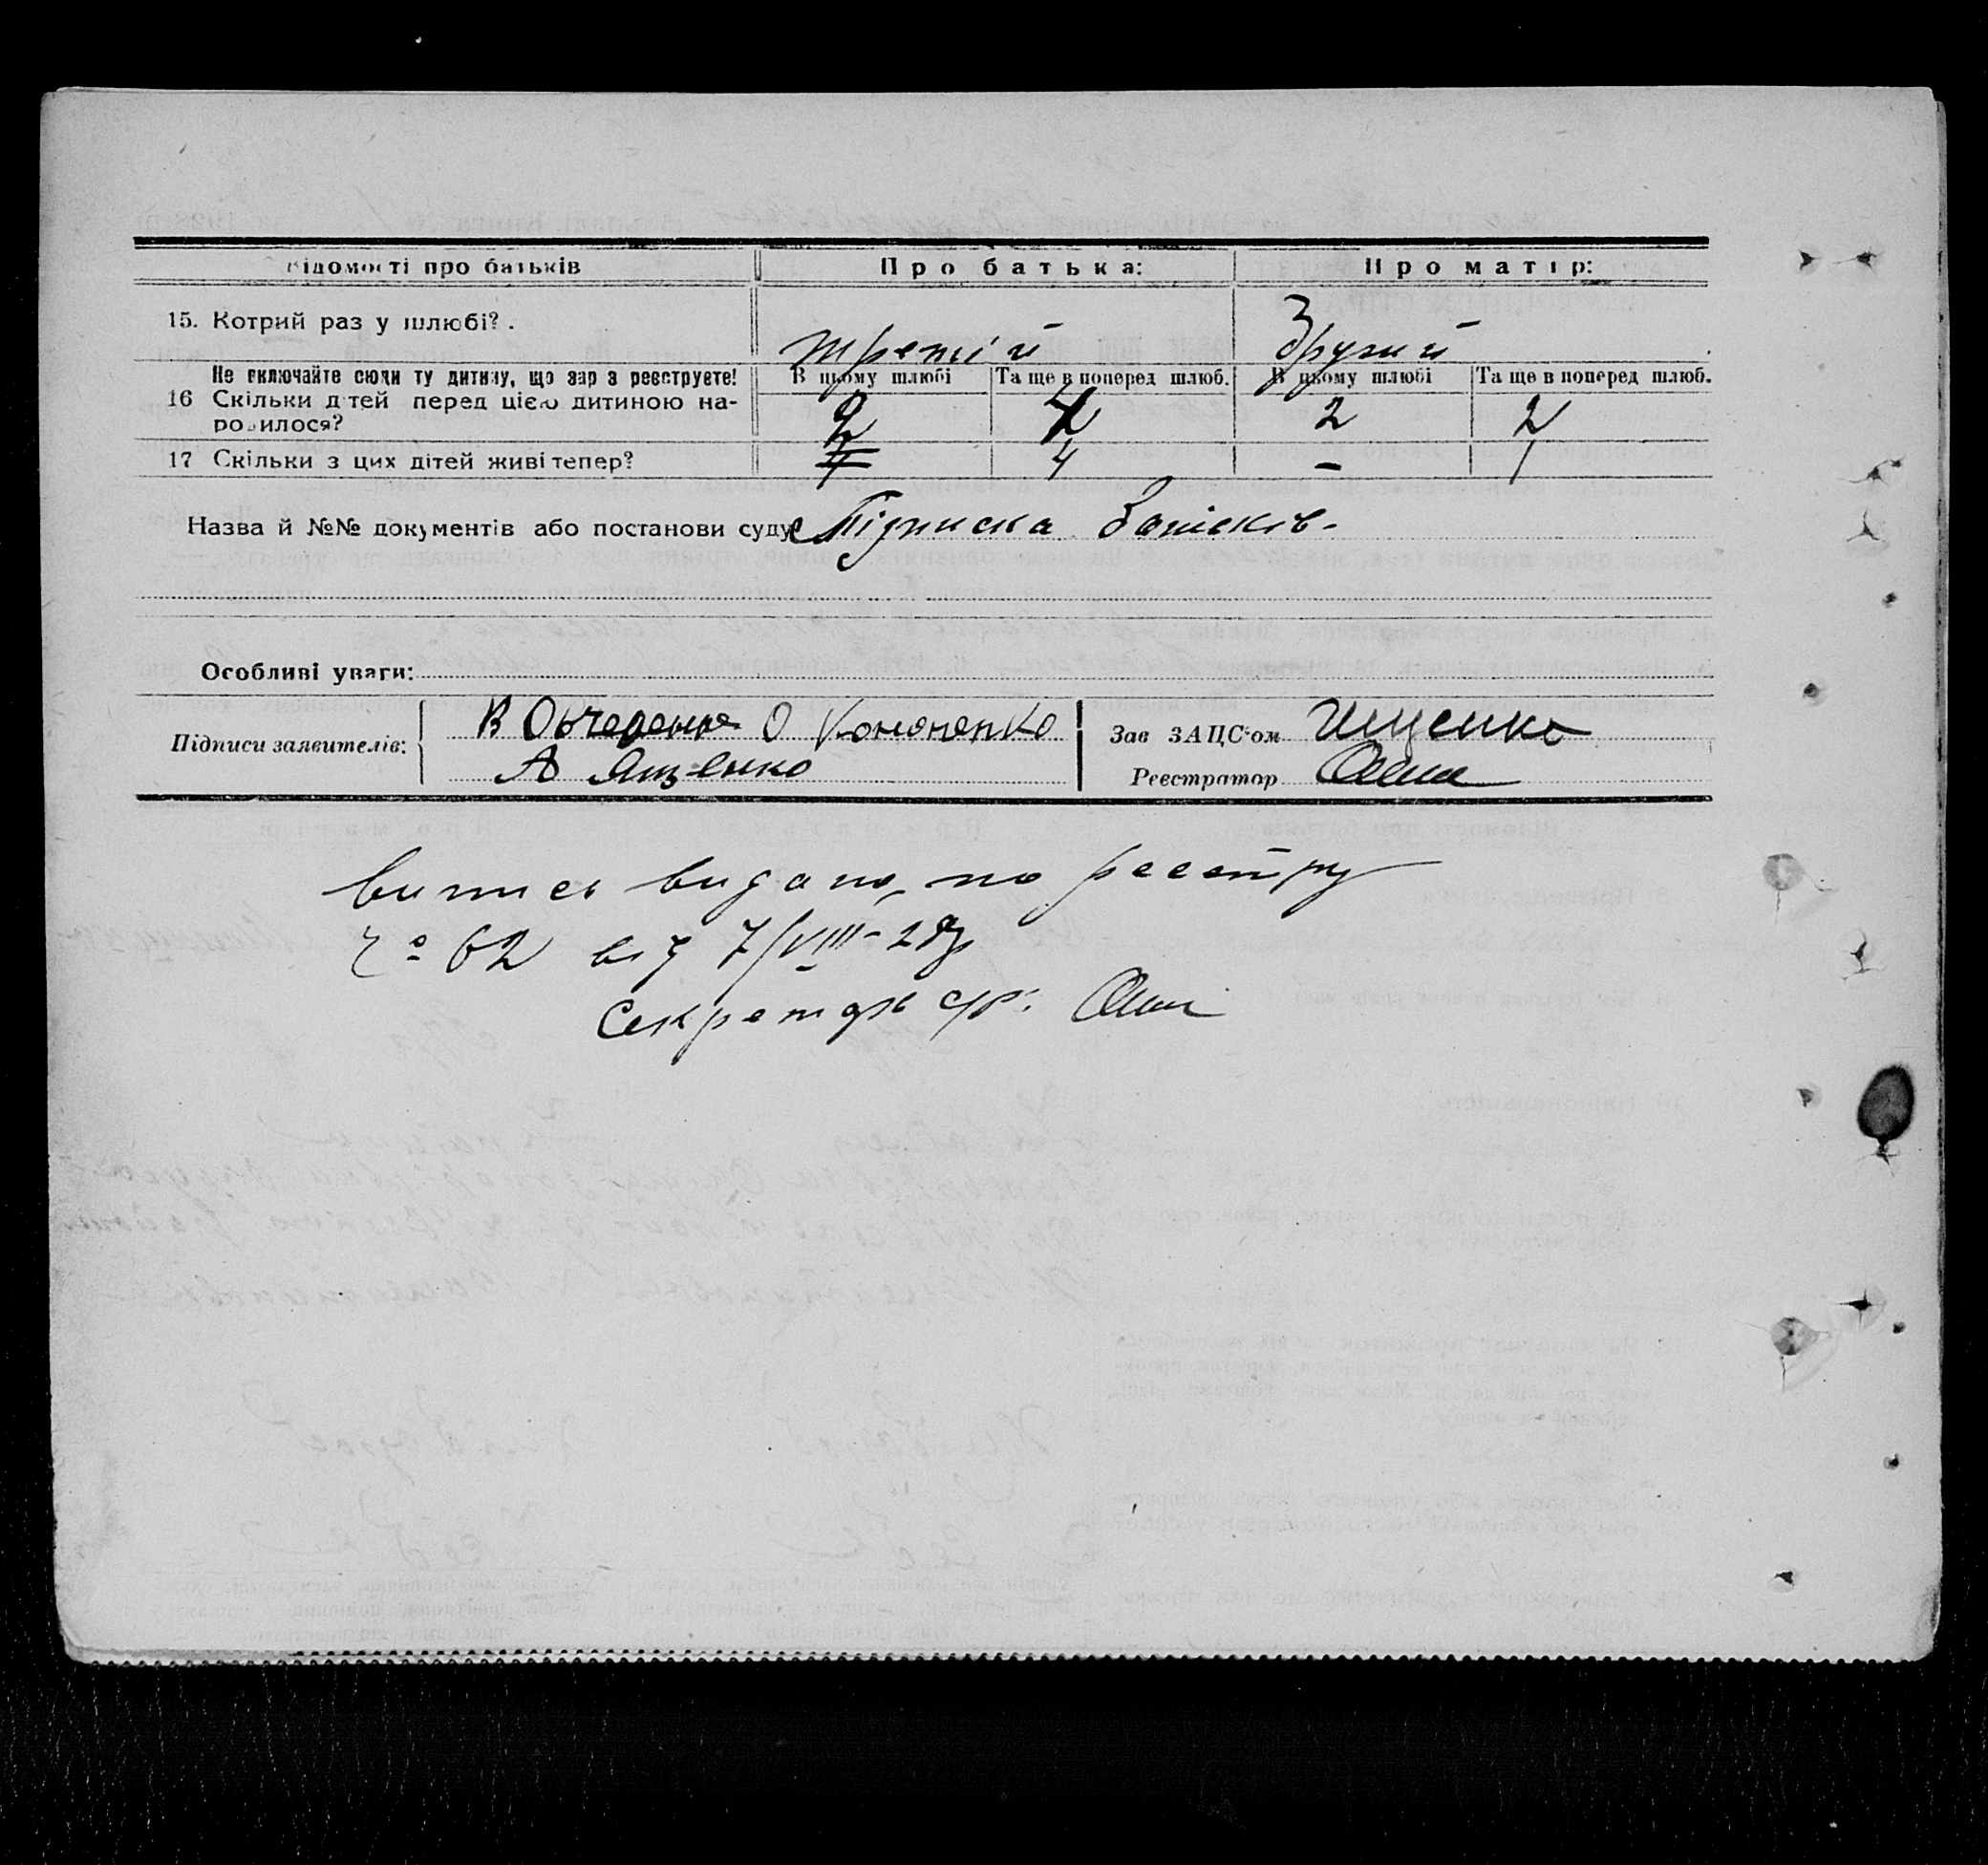 Відомості про батьків Про батька: Про матір:
15. Котрий раз у шлюбі? . третій другий
Не включайте сюди ту дитину, що зараз реєструєте! В цьому шлюбі Та ще в поперед шлюб. В цьому шлюбі Та ще в поперед шлюб.
16 Скільки дітей перед цією дитиною на-
родилося? 2 2 2
17 Скільки з цих дітей живі тепер? 4 – 1
Назва й №№ документів або постанови суду Підписка батьків.
Особливі уваги:
Підписи заявителів: В Овчеренко О Кононенко Зав ЗАЦС'ом Ищенко
А Ященко Реєстратор
Витись видано, по реєстру
№ 62 від 7/VIII-28р
Секретарь с/р: